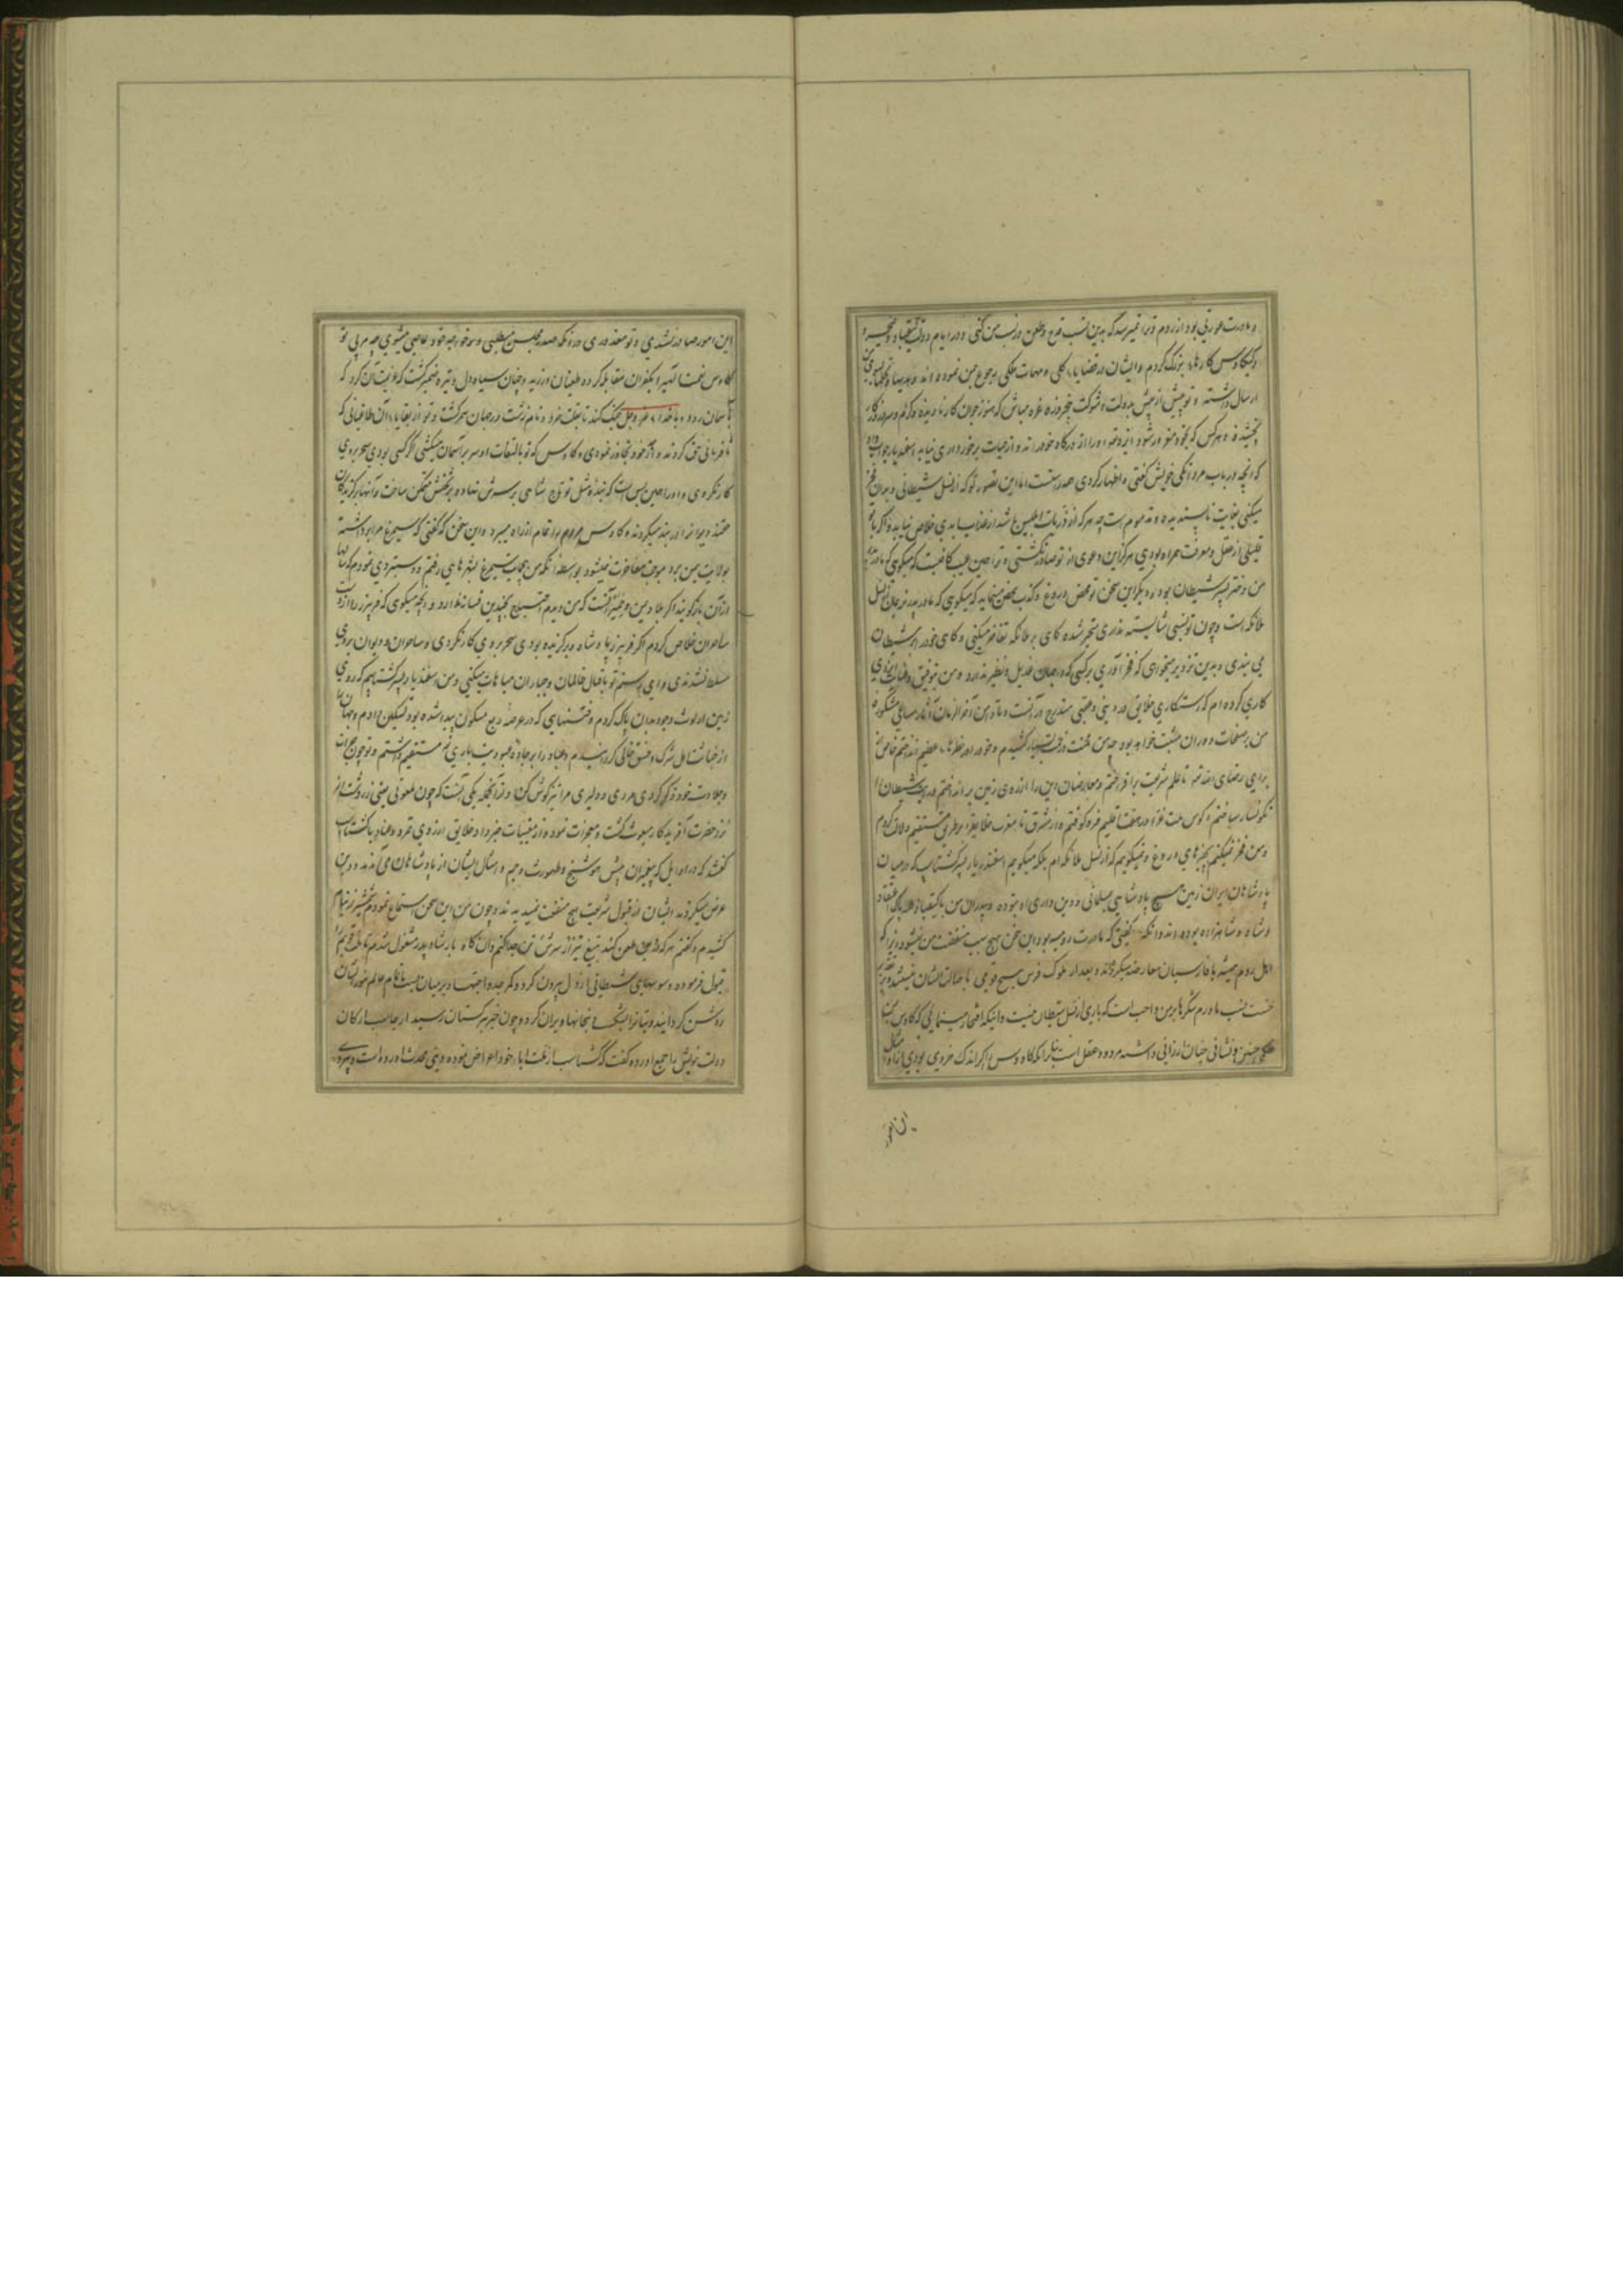 و مادرت عورتی بود از روم و ترا نمیرسد که بدین نسب قدح و طعن در نسب من کنی و در ایام دولت کیقباد و کیخسرو
و کیکاوس کارهای بزرگ کردم و ایشان در قضایای کلی و مهمات ملکی رجوع بمن نموده اند و هدیها و تحفها بسوی من
ارسال داشته و تو پیش از پیش بدولت و شوکت پنجروزه غره مباش که هنوز جوان کار نادیده و گرم و سرد روزگار
نچشیده هر کس که بخود مغرور شود ایزد تعالی او را از درگاه خود راند و از حیات برخورداری نیابد اسفندیار جواب داد
که آنچه در باب مردانگی خویش گفتی و اظهار کردی همه راستست اما این تصور تو که از نسل شیطانی و بدان فخر
میکنی بغایت ناپسندیده و مذموم است چه هر که از ذریات ابلیس باشد از عذاب ابدی خلاص نیابد و اگر با تو
قلیلی از عقل و معرفت همراه بودی هرگز این دعوی از تو صادر نگشتی و ترا همین عیب کافیست که میگوی که مادر
من دختر پسر شیطان بود و دیگر این سخن تو محض دروغ و کذب محض مینماید که میگوی که مادر پدر نریمان از نسل
ملائکه است و چون تو نسبی شایسته نداری متحیر شده گاهی بر ملائکه تفاخر میکنی و گاهی خود را بر شیطان
می بندی و بدین تزویر میخواهی که فخر آوری بر کسی که در جهان عدیل و نظیر ندارد و من بتوفیق و عنایت ایزدی
کاری کرده ام که رستگاری خلایق در دنیی و عقبی مندرج در آنست و تا دامن آخر الزمان آثار مساعی مشکوره
من بر صفحات دوران مثبت خواهد بود چه من محنت و زحمت بسیار کشیدم و خود را در خطرهای عظیم انداختم خاص از
برای رضای الله تعالی تا علم شریعت برافراختم و معارضان این را از روی زمین برانداختم و رایت شیطان را
نگونسار ساختم و کوس ملت غرا در هفت اقلیم فرو کوفتم و از مشرق تا مغرب خلایق را بر طریق مستقیم دلالت کردم
و من فخر نمیکنم بچیزهای دروغ و نمیگویم که از نسل ملائکه ام بلکه میگویم اسفندیار پسر گشتاسپ که در میان
پادشاهان ایران زمین هیچ پادشاهی بمسلمانی و دین داری او نبوده و پدران من تا کیقباد همه پاک اعتقاد
و شاه و شاهزاده بوده اند و آنکه گفتی که مادرت رومیه بود این سخن هیچ سبب منقصت من نمیشود زیرا که
اهل روم همیشه با فارسیان معارضه میکردند و بعد از ملوک فرس هیچ قومی باصالت ایشان نمیشد و بر تقدیر
خست نسب مادرم شکرها بر من واجب است که باری از نسل شیطان نیست و اینکه افتخار مینمایی که کاوس بمن
حکم چنین و نشانی چنان ارزانی داشته مردود عقل است بنابر آنکه کاوس را اگر اندک خردی بودی از او مثل
این امور
این امور صادر نشدی و تو معذوری در آنکه صدر مجلس می طلبی و بر خواجه خود عاصی میشوی چه مربی تو
کاوس نعمت الهی را بکفران مقابله کرده طغیان ورزید و چنان سیاه دل و تیره ضمیر گشت که عزیمت آن کرد که
باسمان رود و با خدای عز و جل جنگ کند تا بعلت خرد و نام زشت در جهان سمر گشت و تو از بقایای آن طاغیانی که
نافرمانی حق کردند و از حد خود تجاوز نمودی و کاوس که تو بالتفات او سر بر آسمان میکشی اگر کسی بودی سحر بر وی
کار نکردی و او را همین بس است که بنده مثل تو تاج شاهی بر سرش نهاد و بر تختش متمکن ساخت و آنها که برگزیدگان
حقند دیوان را در بند میکردند و کاوس مردم را تمام از راه میبرد و این سخن که گفتی که سیمرغ مرا برداشته
بولایت من برد موجب مفاخرت نمیشود بواسطه آنکه من بعجایب سیمرغ بشهرهای رفتم و دستبردی نمودم که سالها
از آن بازگویند اگر بلاد من و غیر آنست که من دیدم احتیاج بچندین فسانه ندارد و آنچه میگوی که فریبرز را از دست
ساحران خلاص کردم اگر فریبرز پادشاه و برگزیده بودی سحر بر وی کار نکردی و ساحران و دیوان بر وی
مسلط نشدندی و ای رستم تو بافعال ظالمان و جباران مباهات میکنی و من اسفندیار پسر گشتاسپم که روی
زمین از لوث وجود بدان پاک کردم و فتنهای که در عرصه ربع مسکون پیدا شده بود تسکین دادم و جهان را
از خباثت اهل شرک و فسق خالی گردانیدم و عباد را بر جاده عبودیت باری مستقیم داشتم و تو چون جرات
و جلادت خود ذکر کردی مردی و دلیری مرا نیز گوش کن و از آنجمله یکی آنست که چون ملعونی یعنی زردشت از
نزد حضرت آفریدگار مبعوث گشت و معجزات نمود و از مغیبات خبر داد خلایق از روی تمرد و عناد با گشتاسپ
گفتند که در اوایل که پیغمبران پیش هوشنج و طهمورث و جم و امثال ایشان از پادشاهان می آمدند و دین
عرض میکردند ایشان از قبول شریعت هیچ منفعت ندیدند و چون من این سخن استماع نمودم شمشیر از نیام
کشیدم و گفتم هر که در دین طعن کند بتیغ تیز از سرش تن جدا کنم و آنگاه بارشاد پدر مشغول شدم تا ملت قویم را
قبول فرموده وسوسهای شیطانی از دل بیرون کرد و کمر جد و اجتهاد بر میان بست تا تمام عالم بنور ایمان
روشن گردانید و بتان را بشکست و بتخانها ویران کرد و چون خبر بترکستان رسید ارجاسب ارکان
دولت خویش را جمع آورده گفت که گشتاسب از ملت آباء خود اعراض نموده دینی محدث آورده است و پیروی